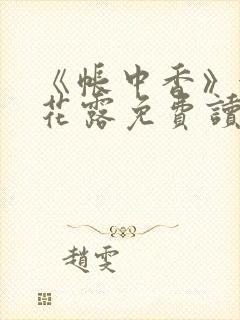 《帳中香》
花露免費讀
趙雯